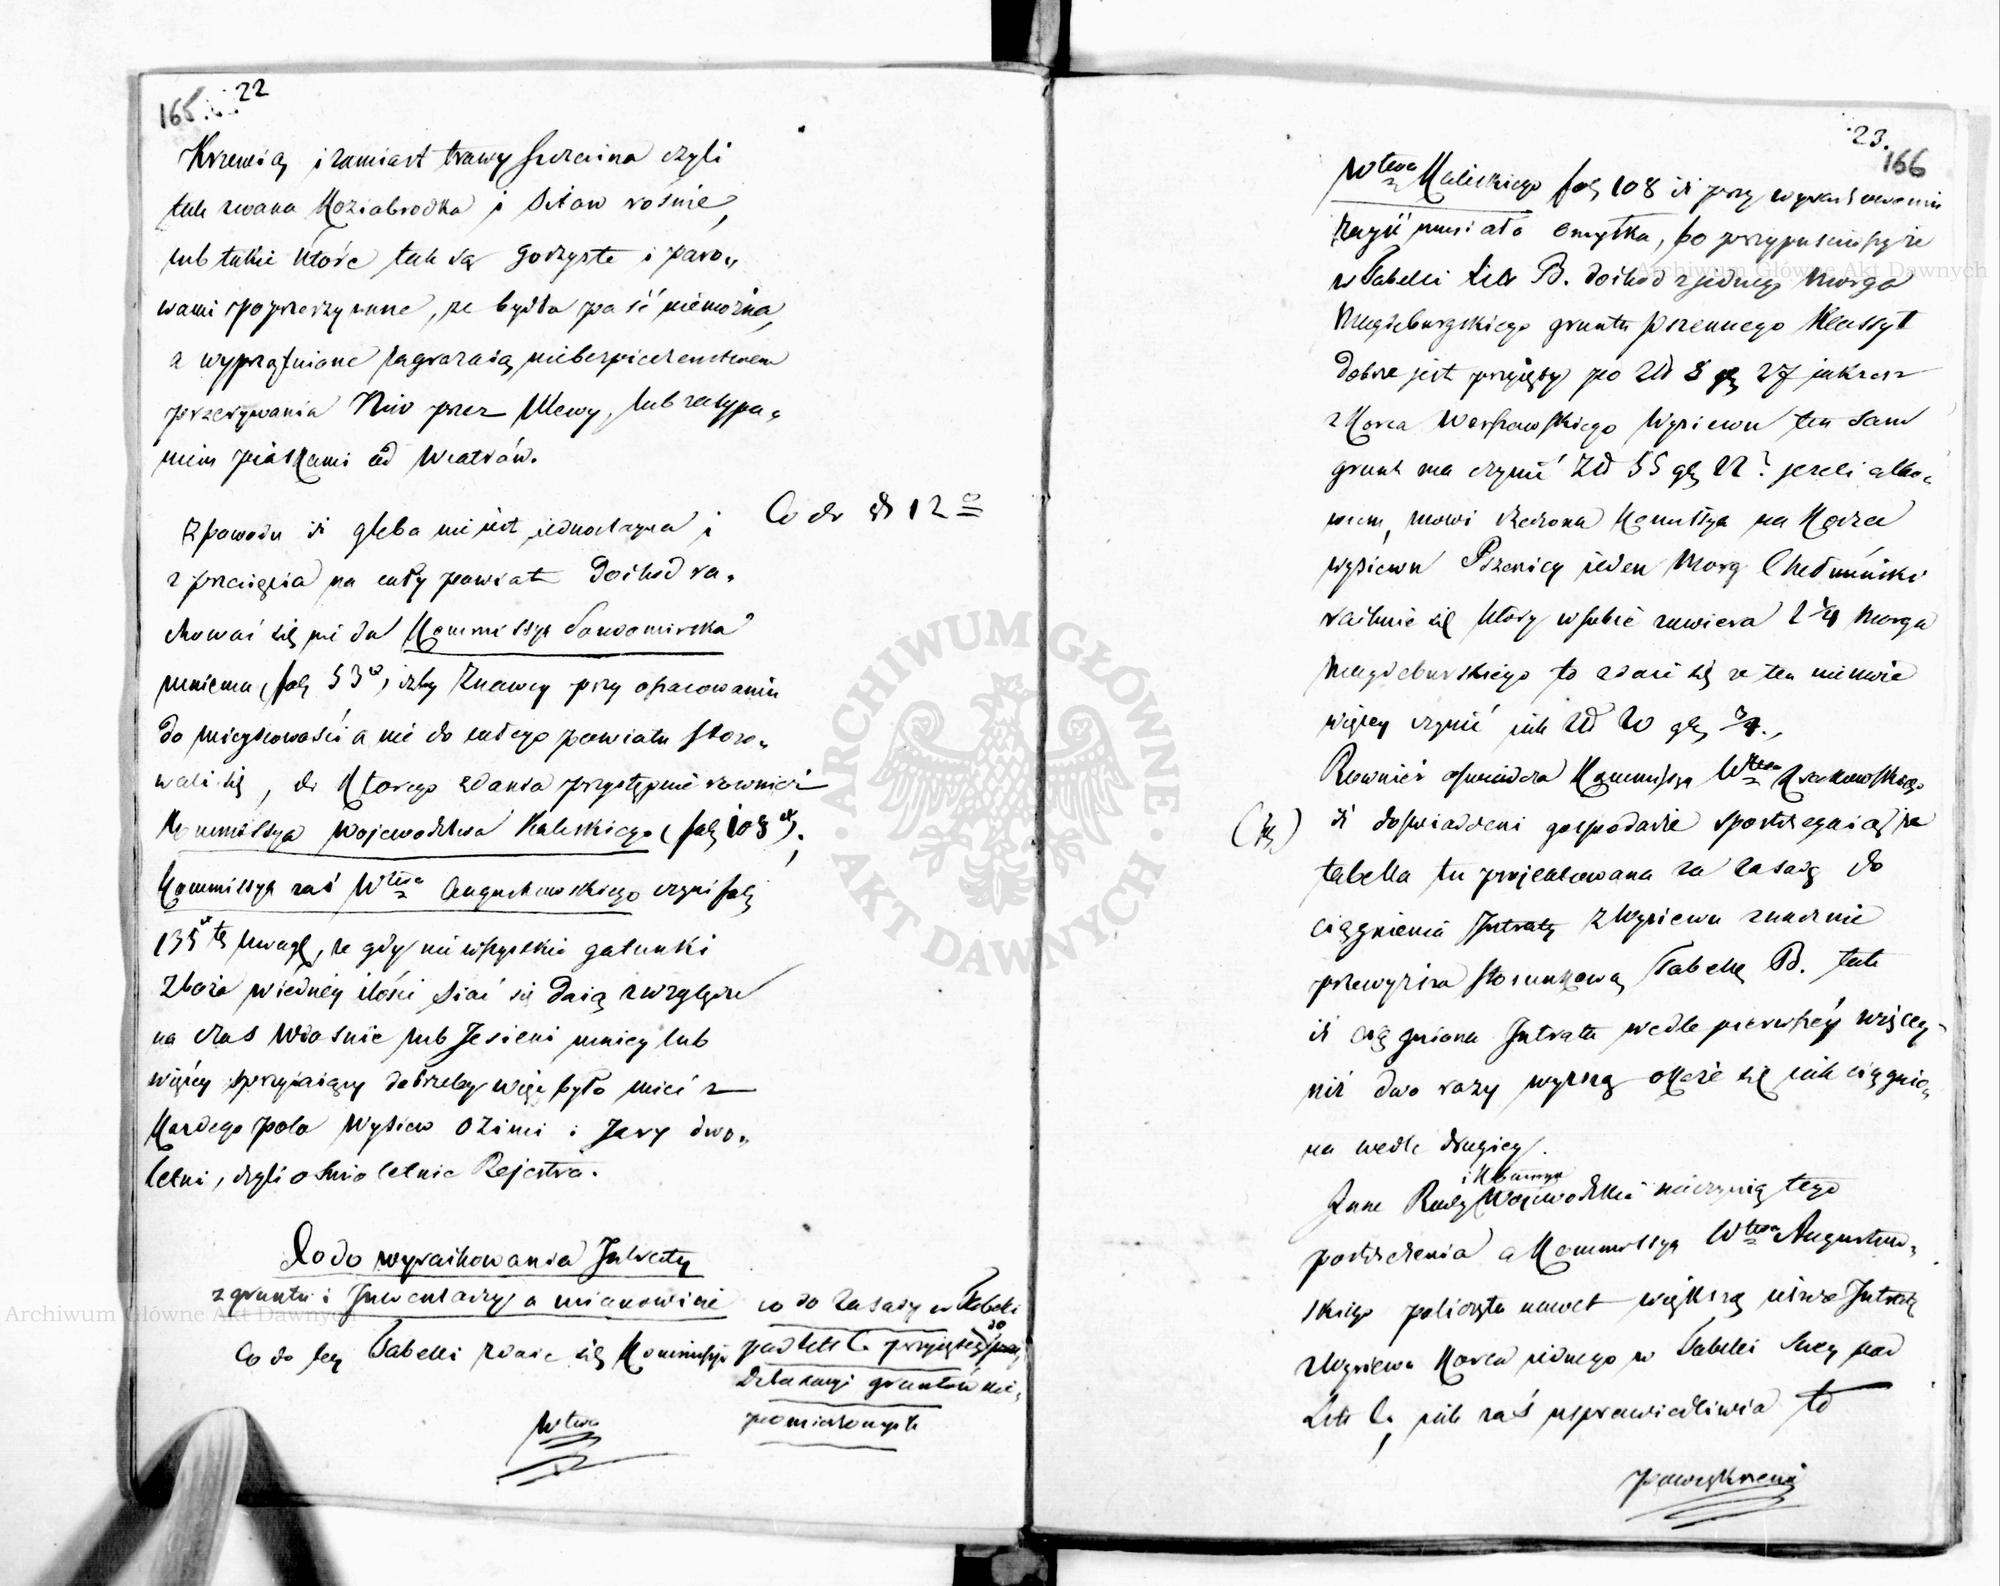 165. 22
Krzewią i zamiast trawy szczcina czyli
tak zwana Koziabrodka i Sitow rośnie,
lub takie które tak są gorzyste i paro„
wami poprzerzynane, że bydła paść niemożna,
a wyprątnione zagrażaią niebespieczenstwem
przerywania Niw przez Ulewy, lub zasypa„
niem piaskami od Wiatrów.
Z powodu iż gleba nie iest jednostayna i
z przecięcia na cały powiat Dochod ra„
chować się nie da Kommissya Sandomirska
mniema, folij 53°, iżby Znawcy przy oszacowaniu
do mieyscowości a nie do całego powiatu stoso„
wali się, do Ktorego zdania przystępuie rownież
Kommissya Wojewodztwa Kaliskiego (folij 108
Kommissya zaś Wtwa Augustowskiego czyni folij
135 tę Uwagę, że gdy nie wszystkie gatunki
Zboża w iedney ilości siać się daią z względu
na czas Wiosnie lub Jesieni mniey lub
więcey sprzyiaiący dobrzeby więc było mieć z
Kazdego pola Wysiew Ozimi i Jary dwo„
letni, czyli ośmioletnie Rejestra.
Co do § 12°
Co do wyrachowania Intraty
z gruntu i Inwentarzy a mianowicie
co do Zasady w Tabelli
pod Litt C. przyiętey do
Detaxacyi gruntów nie„
pomierzonych
Co do tey Tabelli zdaie się Kommissyi
Wtwa
23.
166
Wtwa Kaliskiego folij 108 iż przy wyrachowaniu
zayść musiała omyłka, bo przypuściwszy że
w Tabelli Litt B. dochod z jednego Morga
Magdeburgskiego gruntu pszennego Klassy 1
dobrze jest przyięty po Zł 8 gr 27 jakże
z Korca Warszawskiego Wysiewu ten sam
grunt ma czynić Zł 55 gr 22? jezeli albo„
wiem, mowi rzeczona Kommissya na Korzec
wysiewu Pszenicy ieden Morg Chełmiński
rachuie się który w sobie zawiera 2 1/4 Morga
Magdeburskiego to zdaie się że ten nie może
więcey czynić iak Zł 20 gr 3/4.,
Rownież oświadcza Kommissya Wtwa Krakowskiego
iż doświadczeni gospodarze spostrzegaią że
tabella tu projektowana za zasadę do
ciągnienia Intraty z Wysiewu znacznie
przewyższa stosunkową Tabellę B. tak
iż ciągniona Intrata wedle pierwszey więcey
niż dwa razy wyższą okaże się iak ciągnio„
na wedle drugiey.
Inne Rady i Kommissye Wojewodzkie nieczynią tego
postrzeżenia a Kommissya Wtwa Augustow„
skiego policzyła nawet większą ieszcze Intratę
z Wysiewu Korca iednego w Tabelli swey pod
Litt C, iak zaś usprawiedliwia to
powiększenie